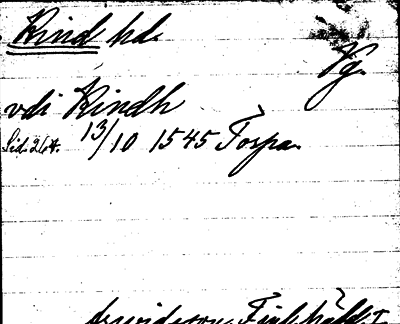 Kind hd.
Vg.
vdi Kindh
Sid. 264. 13/10 1545 Torpa.